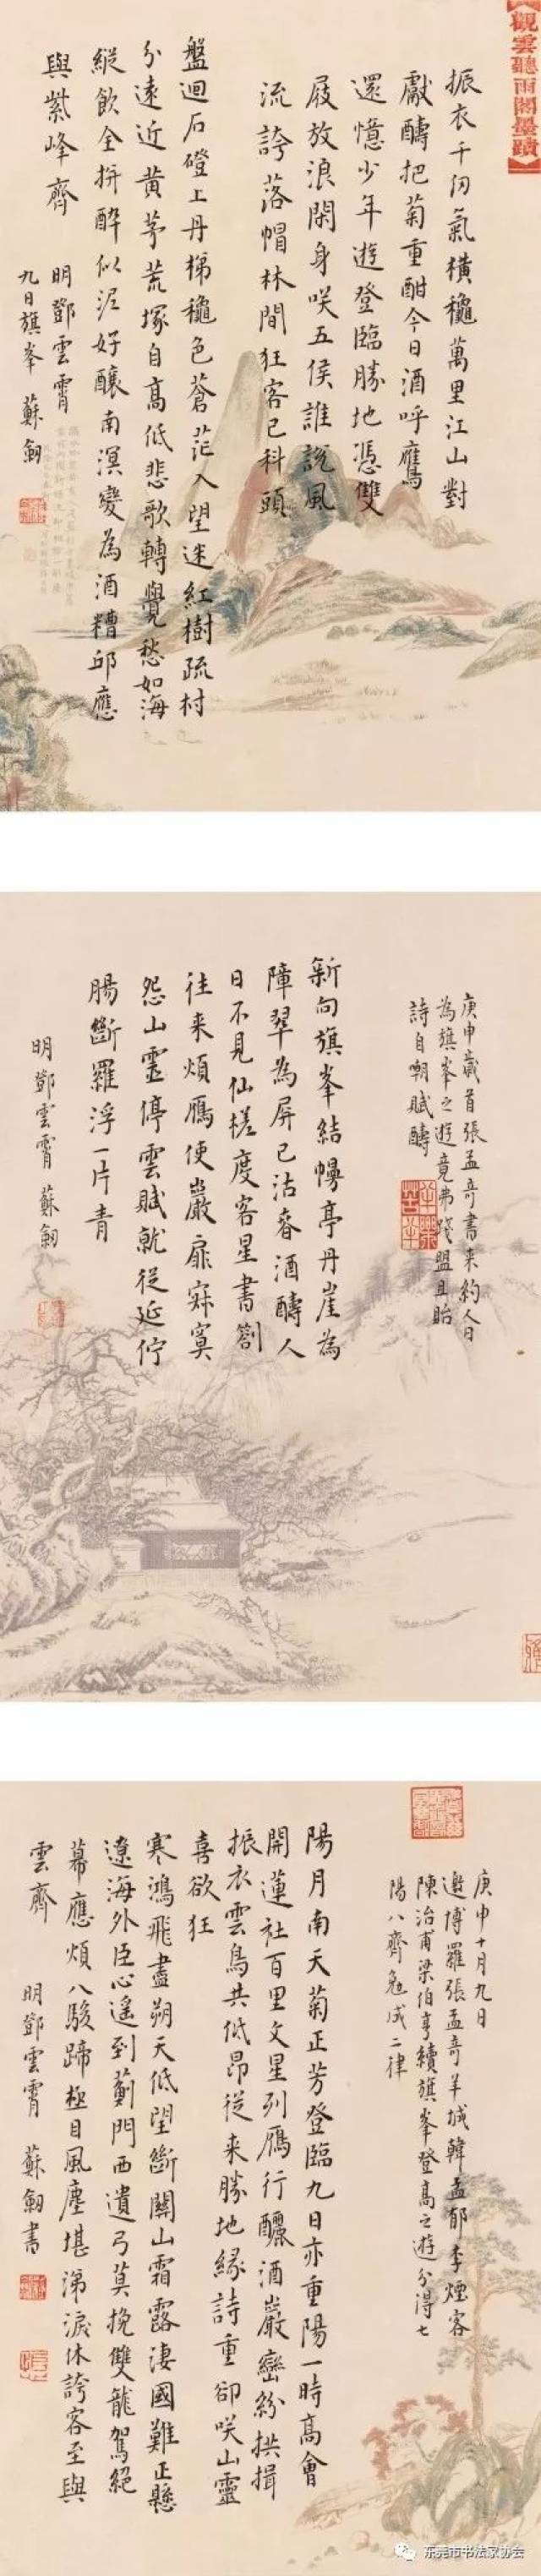 觀雲聽雨閣墨蹟
振衣千仞氣橫龝萬里江山對
獻醻把菊重酣今日酒呼鷹
還憶少年遊登臨勝地憑雙
屐放浪閑身咲五侯誰說風
流誇落帽林間狂客已科頭
盤迴石磴上丹梯龝色蒼茫入望迷紅樹疏村
分遠近黃茅荒塚自高低悲歌轉覺愁如海
縱飲全拚醉似泥好釀南溟變為酒糟邱應
與紫峰齊
明鄧雲霄
九日旗峯 蘇
庚申歲首張孟奇書來約人日
為旗峯之遊竟弗踐盟且貽
詩自嘲賦醻
新向旗峯結幔亭丹崖為
障翠為屏已沽春酒醻人
日不見仙槎度客星書劄
往來煩鴈使巖扉寂寞
怨山靈停雲賦就從延佇
腸斷羅浮一片青
明鄧雲霄 蘇
庚申十月九日
邀博羅張孟奇羊城韓孟郁李煙客
陳治甫梁伯亨續旗峯登高之遊分得七
陽八齊勉成二律
陽月南天菊正芳登臨九日亦重陽一時高會
開蓮社百里文星列鴈行釃酒巖巒紛拱揖
振衣雲鳥共低昂從來勝地緣詩重卻咲山靈
喜欲狂
寒鴻飛盡朔天低望斷關山霜露淒國難正懸
遼海外臣心遙到薊門西遺弓莫挽雙龍駕絕
幕應煩八駿蹄極目風塵堪涕淚休誇客至與
雲齊
明鄧雲霄 蘇 書
东莞市书法家协会